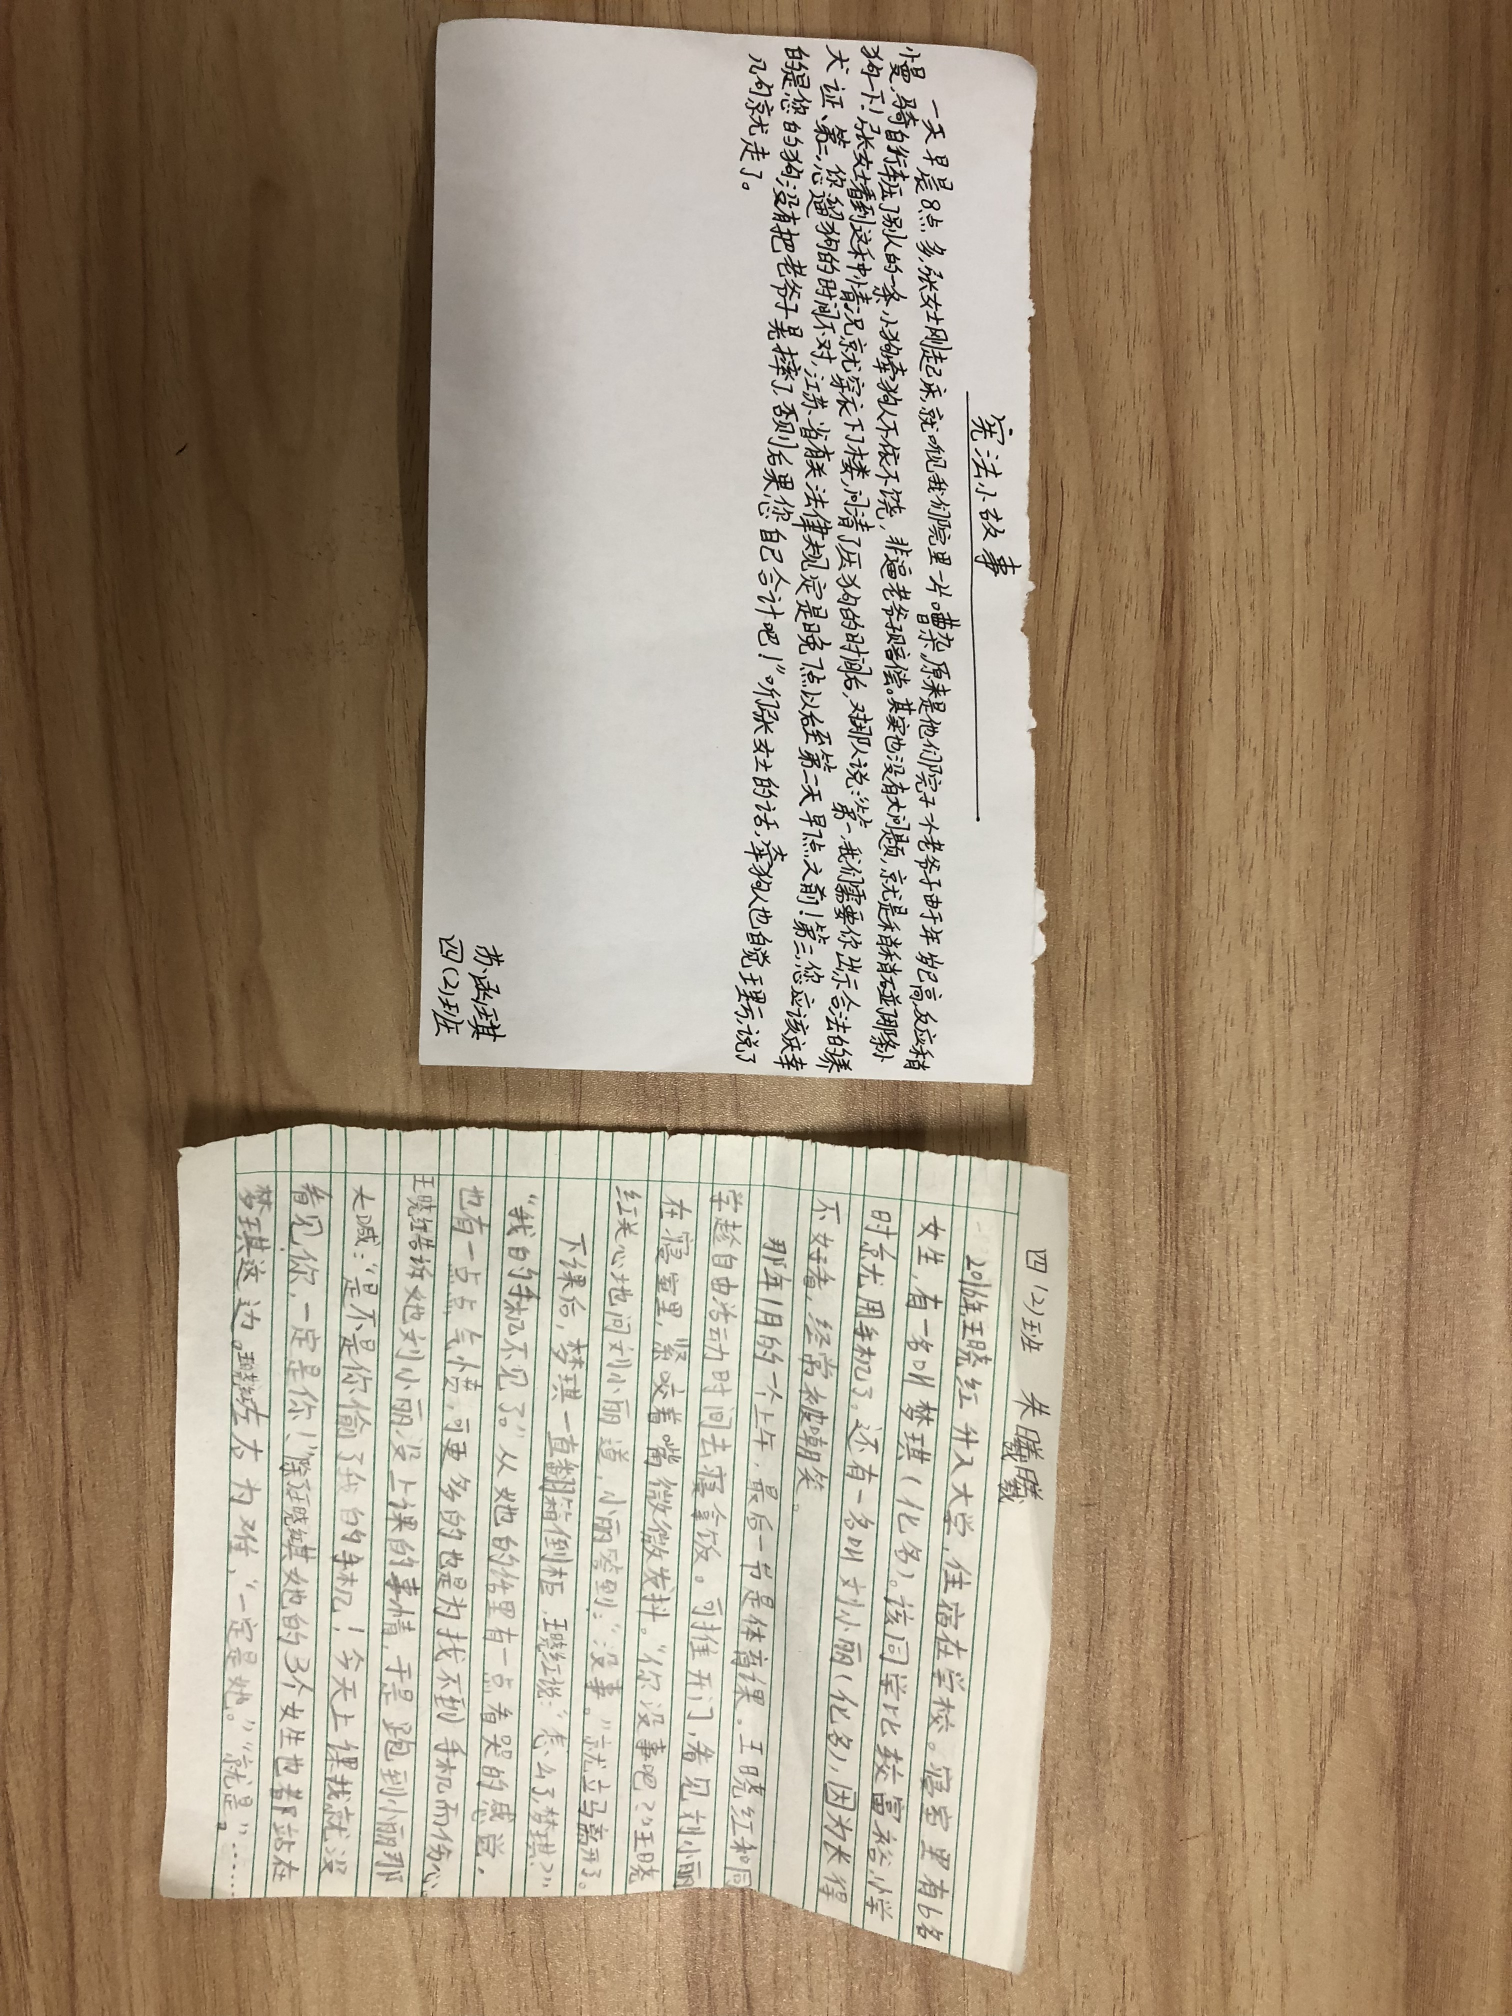 宪法小故事
一天早晨8点多,张女士刚起床,就听见我们院里一片嘈杂,原来是他们院子一个老爷子由于年岁已高,反应稍
慢,骑自行车压了别人的一条小狗,牵狗人不依不饶,非逼老爷子赔偿。其实也没有大问题,就是稍稍碰了那条小
狗一下!张女士看到这种情况就穿衣下了楼,问清了压狗的时间后,对那人说:“第一,我们需要你出示合法的养
犬证、第二,你遛狗的时间不对,江苏省有关法律规定是晚7点以后至第二天早7点之前!第三,你应该庆幸
的是您的狗没有把老爷子晃摔了,否则后果你自己合计吧!”听张女士的话,牵狗人也自觉理亏,说了
几句就走了。
苏涵琪
四(2)班
四(2)班 朱曦曦
2016年王晓红升入大学,住宿在学校。寝室里有6名
女生,有一名叫梦琪(化名)。该同学比较富裕,小学
时就用手机了。还有一名叫刘小丽(化名),因为长得
不好看,经常被嘲笑。
那年1月的一个上午,最后一节是体育课。王晓红和同
学趁自由活动时间去寝拿饭。可推开门,看见刘小丽
在寝室里,紧咬着嘴微微发抖。“你没事吧?”王晓
红关心地问刘小丽道,小丽答到:“没事。”就立马离开了。
下课后,梦琪一直翻箱倒柜,王晓红说:“怎么了,梦琪?”
“我的手机不见了。”从她的话里有一点着哭的感觉,
也有一点点气愤,可更多的也是为找不到手机而伤心
王晓红告诉她刘小丽没上课的事情,于是跑到小丽那
大喊:“是不是你偷了我的手机!今天上课我就没
看见你,一定是你!”除王晓红其她的3个女生也都站在
梦琪这边。王晓红左右为难,“一定是她。”“就是”……